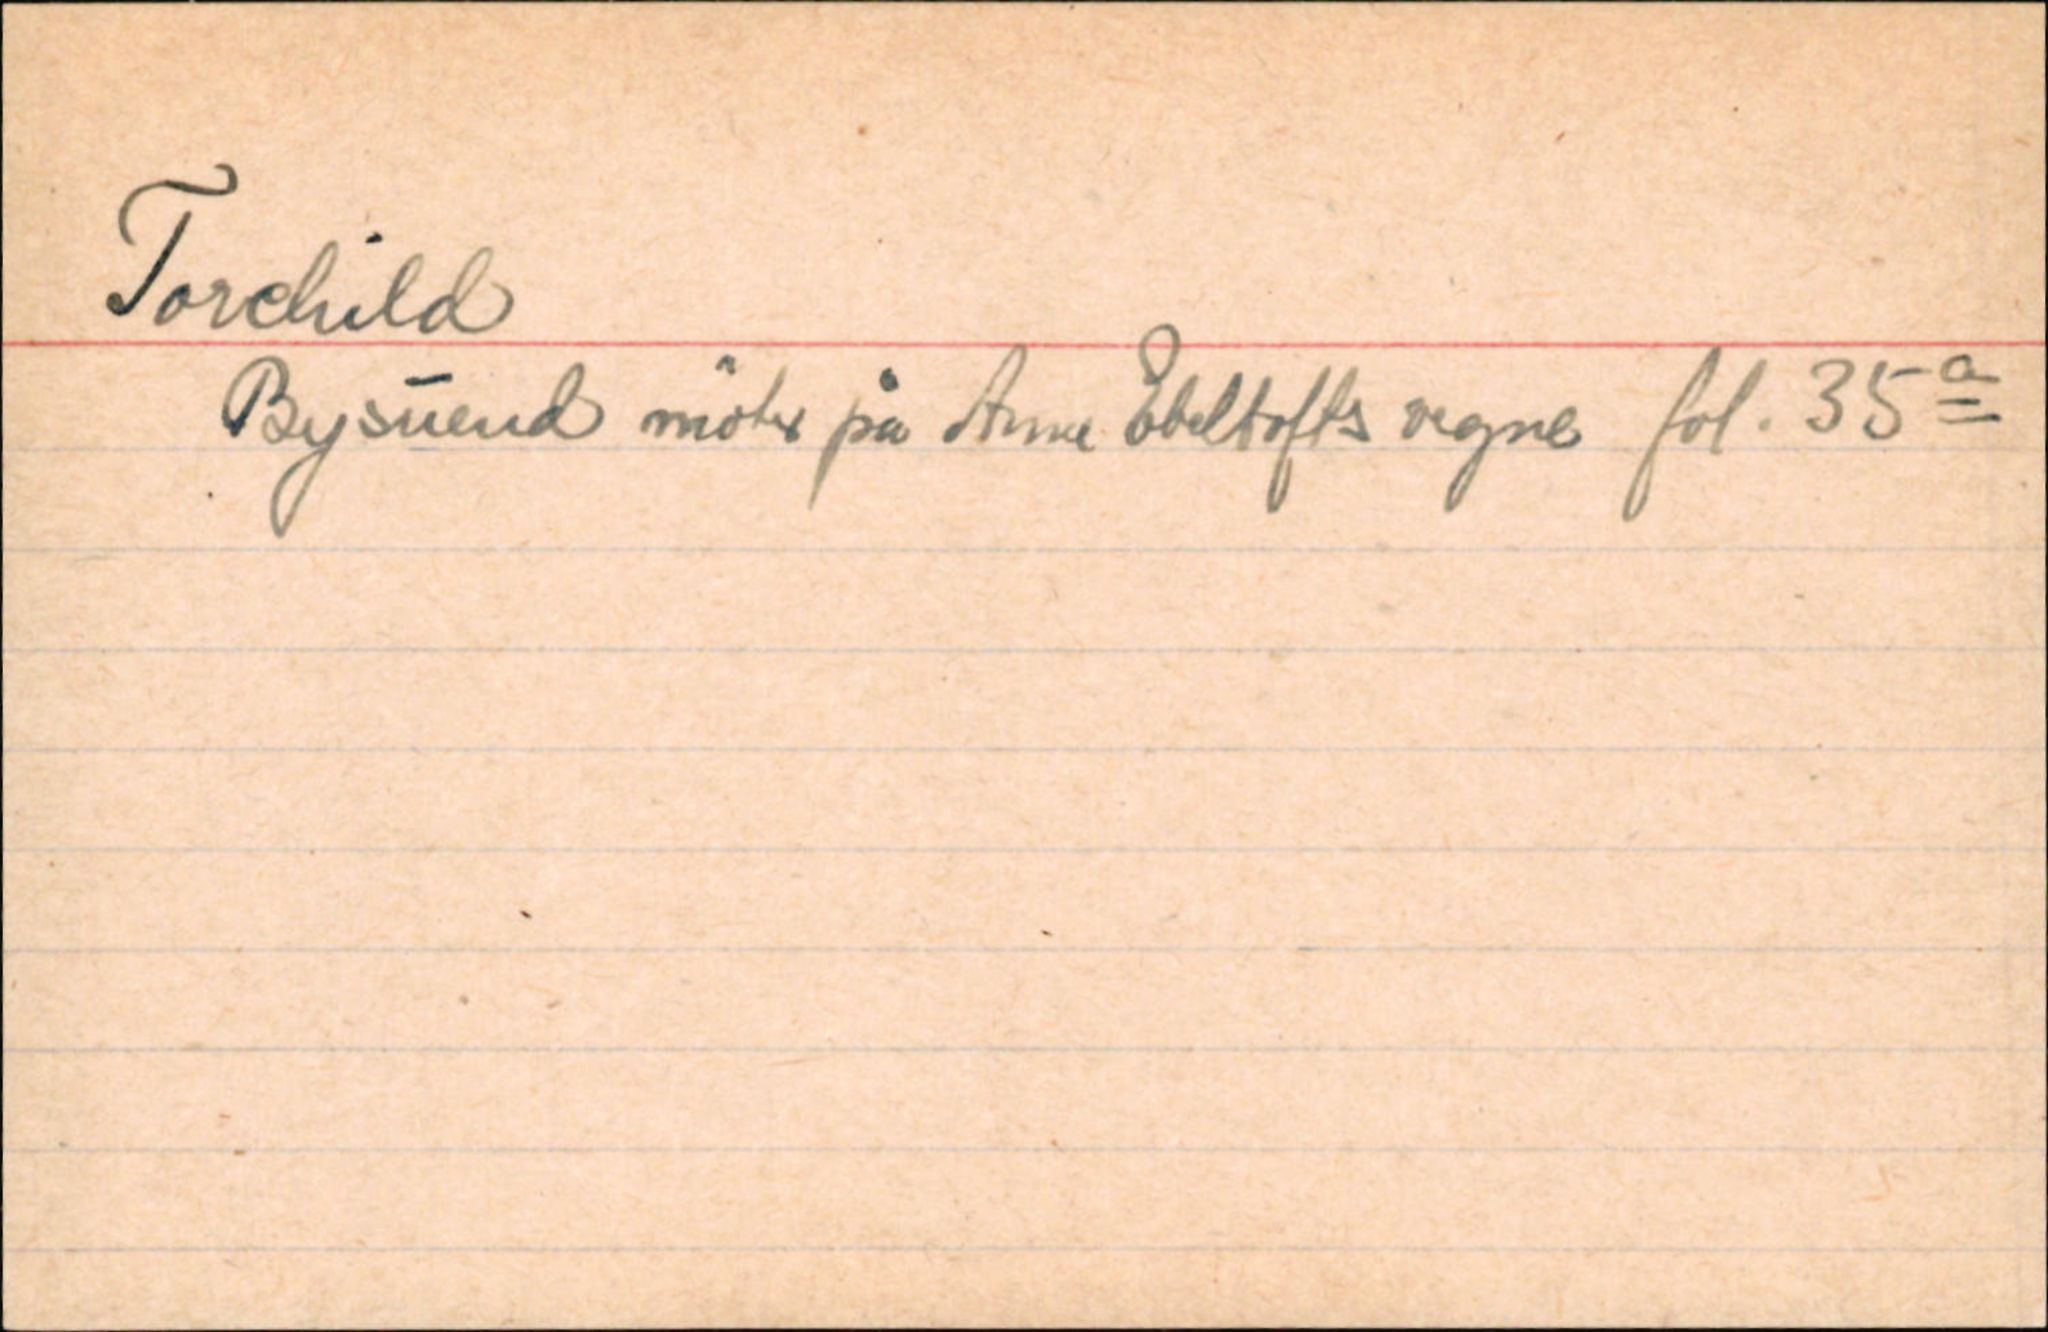 Torchild
Bysuend möter på Anne Ebeltofts vegne fol. 35a